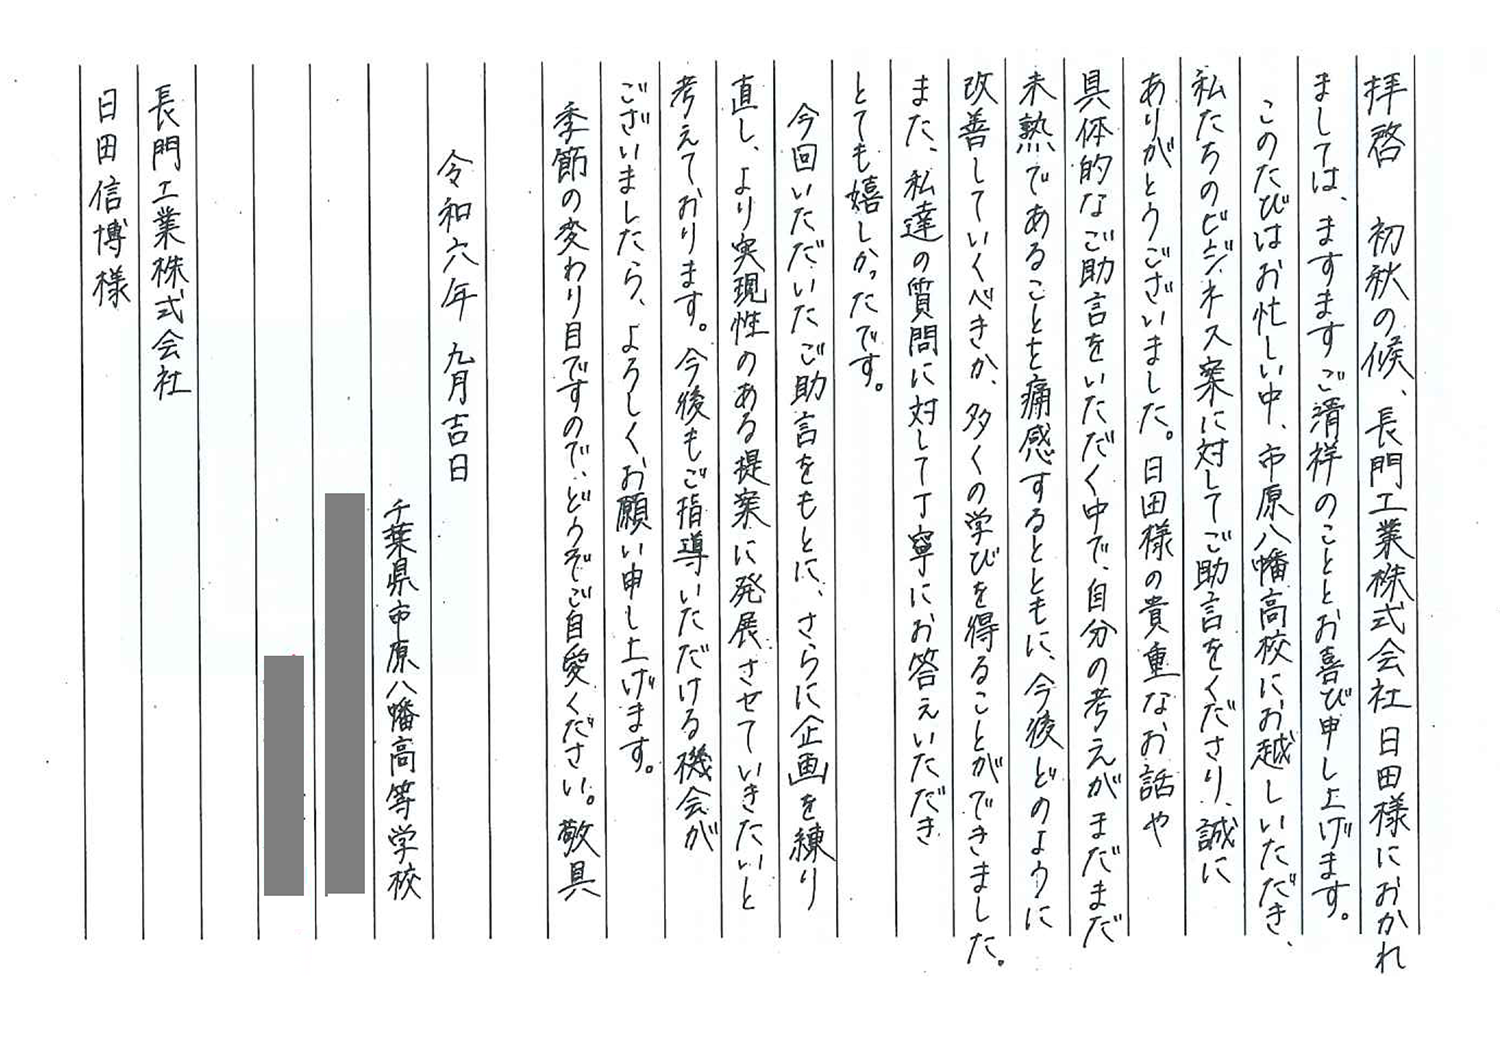 拝啓　初秋の候、長門工業株式会社日田様におかれ
ましては、ますますご清祥のこととお喜び申し上げます。
このたびはお忙しい中、市原八幡高校にお越しいただき、
私たちのビジネス案に対してご助言をくださり、誠に
ありがとうございました。日田様の貴重なお話や
具体的なご助言をいただく中で、自分の考えがまだまだ
未熟であることを痛感するとともに、今後どのように
改善していくべきか、多くの学びを得ることができました。
また、私達の質問に対して丁寧にお答えいただき
とても嬉しかったです。
今回いただいたご助言をもとに、さらに企画を練り
直し、より実現性のある提案に発展させていきたいと
考えております。今後もご指導いただける機会が
ございましたら、よろしくお願い申し上げます。
季節の変わり目ですので、どうぞご自愛ください。敬具
令和六年 九月吉日
千葉県市原八幡高等学校
長門工業株式会社
日田信博様